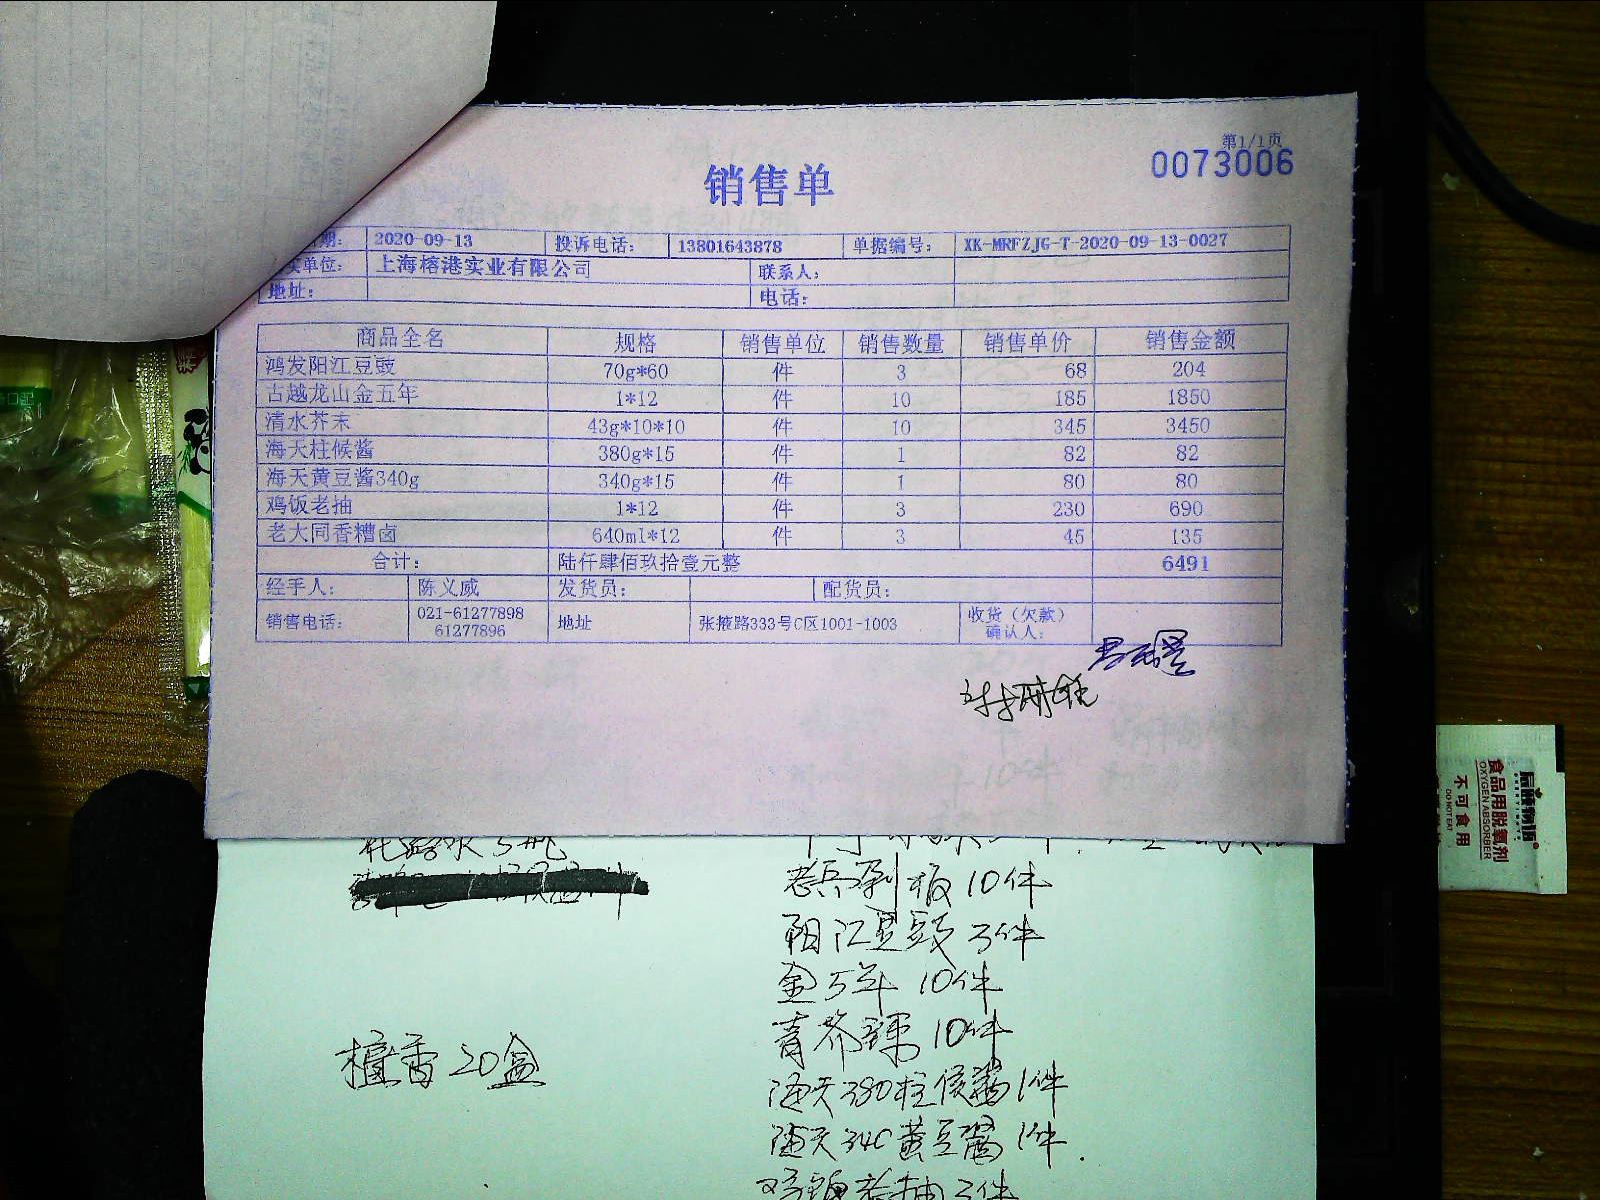 第1/1页
0073006
销售单
期: 2020-09-13 投诉电话: 13801643878 单据编号: XK-MRFZJG-T-2020-09-13-0027
单位: 上海榕港实业有限公司 联系人:
地址: 电话:
商品全名 规格 销售单位 销售数量 销售单价 销售金额
鸿发阳江豆豉 70g*60 件 3 68 204
古越龙山金五年 1*12 件 10 185 1850
清水芥末 43g*10*10 件 10 345 3450
海天柱候酱 380g*15 件 1 82 82
海天黄豆酱340g 340g*15 件 1 80 80
鸡饭老抽 1*12 件 3 230 690
老大同香糟卤 640ml*12 件 3 45 135
合计: 陆仟肆佰玖拾壹元整 6491
经手人: 陈义威 发货员: 配货员:
销售电话: 021-61277898 61277896 地址 张掖路333号C区1001-1003 收货（欠款）确认人:
花露水5瓶
10件
阳江豆豉 3件
金5年 10件
青芥辣 10件
海天380柱侯酱1件
海天340黄豆酱1件.
老抽3件
檀香20盒
食品用脱氧剂
OXYGEN ABSORBER
不可食用
DO NOT EAT